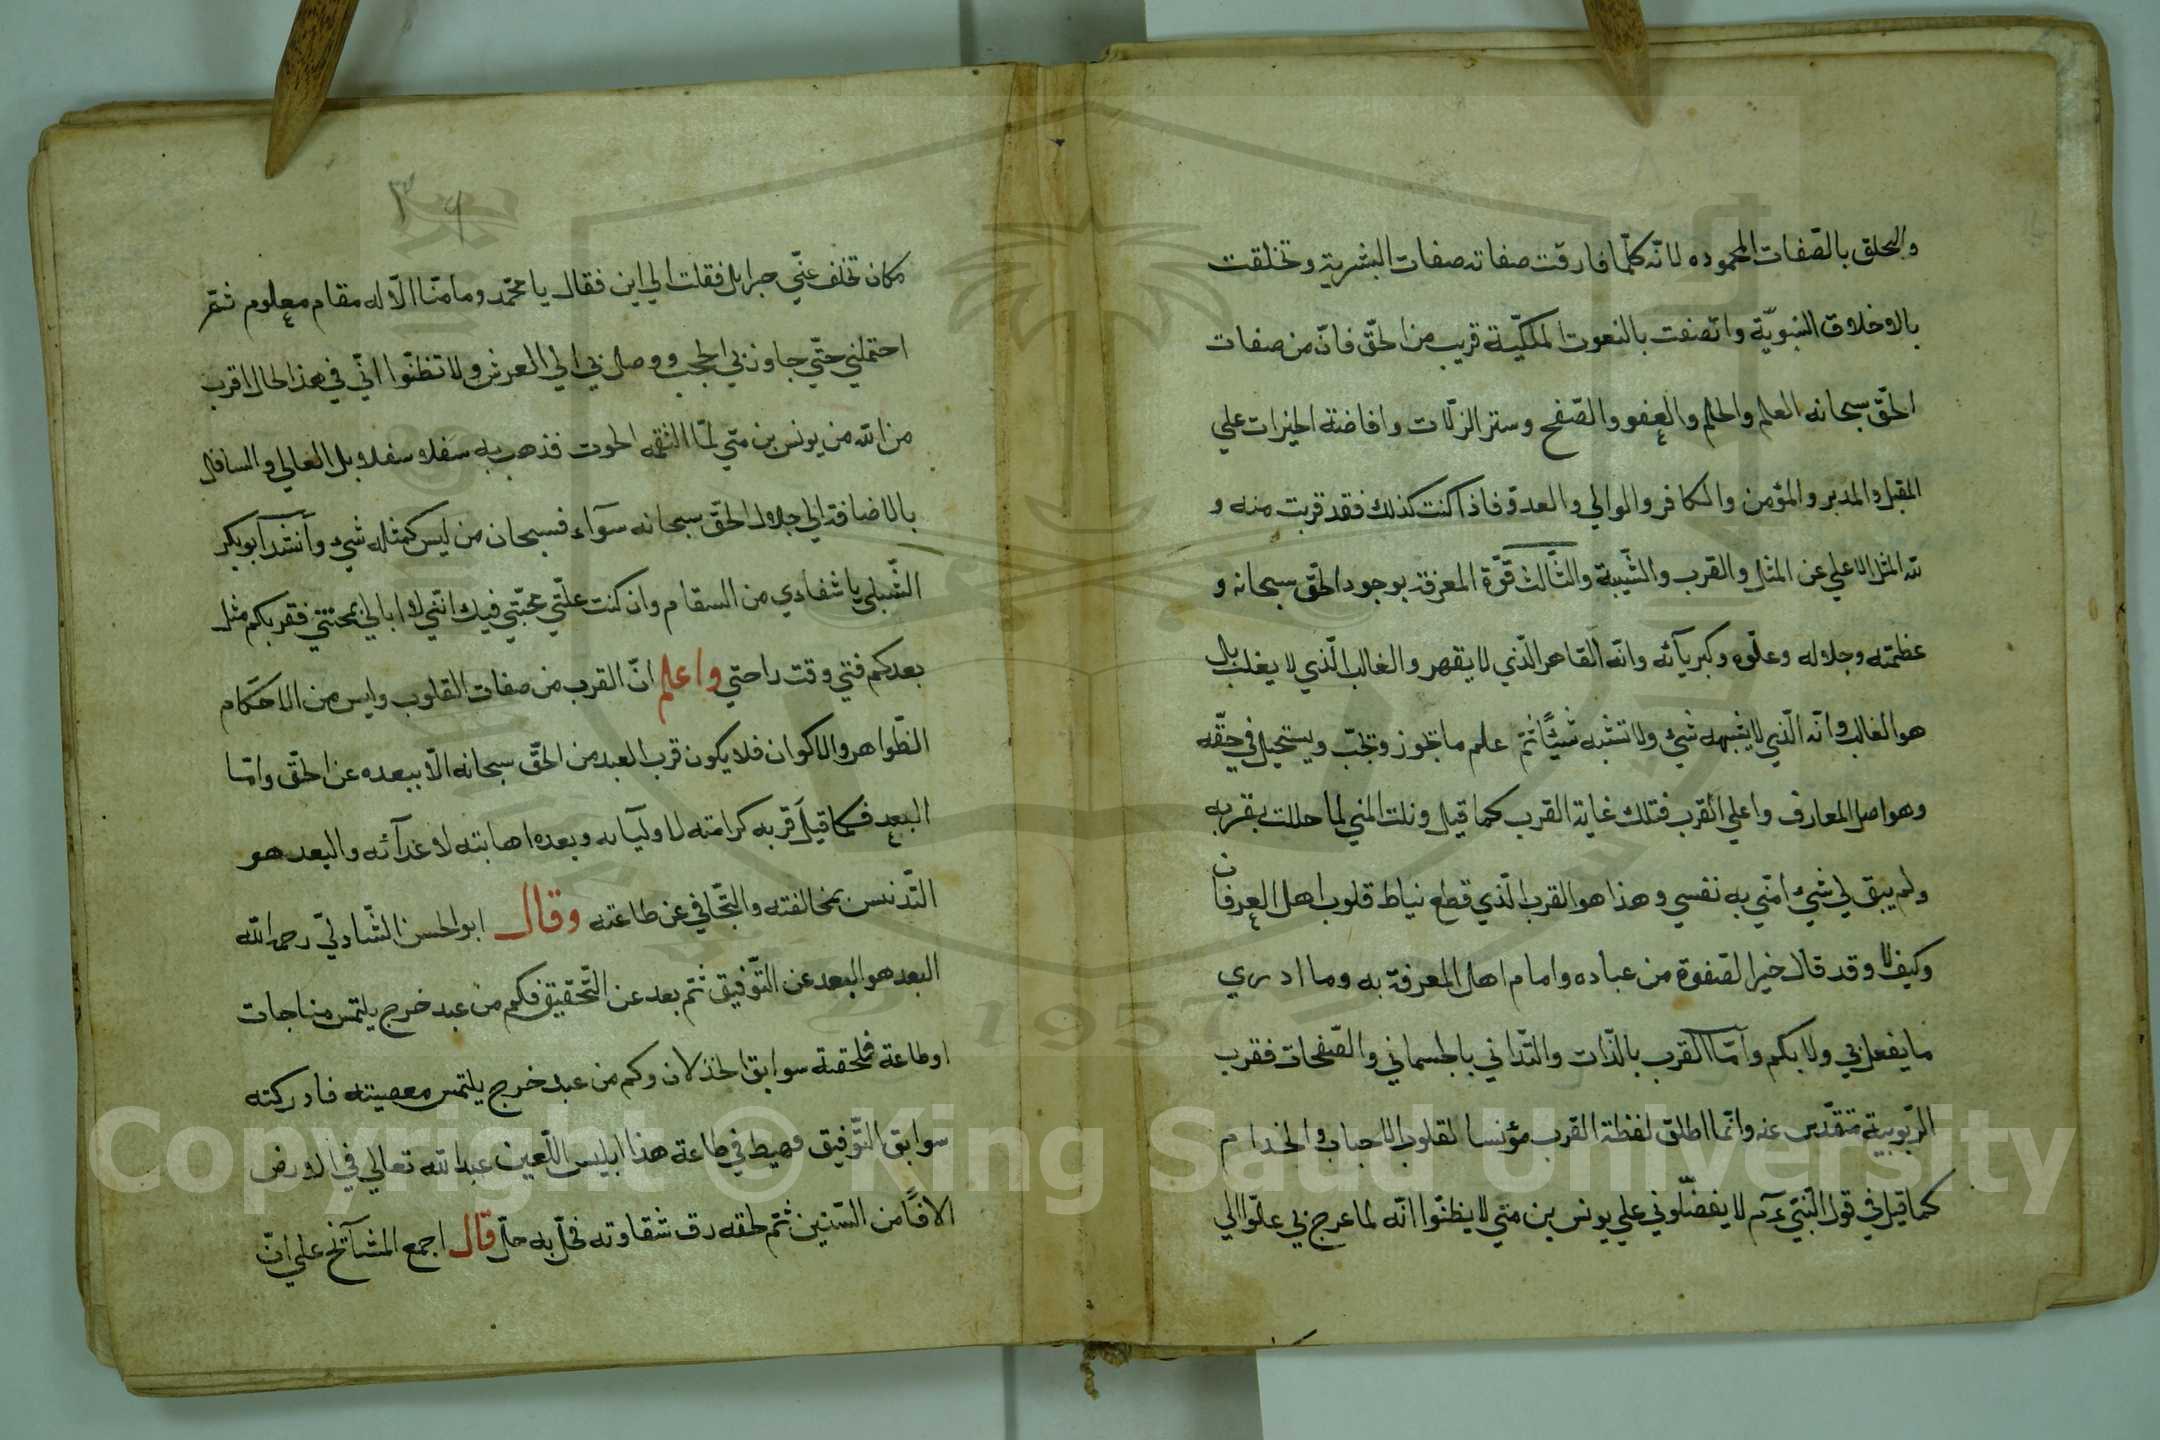 والتحلق بالصّفات المحموده لانّه كلّما فارقت صفاته صفات البشرية وتخلقت
بالاخلاق النبويّة واتّصفت بالنعوت الملكيّة قريب من الحقّ فانّ من صفات
الحقّ سبحانه العلم والحلم والعفو والصّفح وستر الزلّات وافاضة الخيرات علي
المقبل والمدبر والمؤمن والكافر والموالي والعدوّ فاذا كنت كذلك فقد قربت منه و
لله المثل الاعلي عن المثل والقرب والشّيبة والثّالث قوّة المعرفة بوجود الحقّ سبحانه و
عظمته وجلاله وعلّوه وكبريآئه وانّه القاهر الّذي لا يقهر والغالب الّذي لا يغلب بل
هو الغالب وانّه الّذي لا يشبهه شئ ولا تشبه شيئًا ثمّ علم ما تجوز وتجبّ ويستحيل في حقّه
وهو اصل المعارف واعلي القرب فتلك غاية القرب كما قيل ونلت المني لما حللت بقربه
ولم يبق لي شئ امنّي به نفسي وهذا هو القرب الّذي قطع نياط قلوب اهل العرفان
وكيف لا وقد قال خير الصّفوة من عباده وامام اهل المعرفة به وما ادري
ما يفعل بي ولا بكم وآمّا القرب بالذّات والتّداني بالجسماني والصّفحات فقرب
الرّبوبية متقدّس عنه وانّما اطلق لفظة القرب مؤنسا لقلوب الاحباب والخدام
كما قيل في قول النّبيّ عم لا يفضّلوني علي يونس بن متي لا يظنّوا انّه لما عرج بي علوّا الي
مكان تخلف عنّي جبرايل فقلت الي اين فقال يا محمّد وما منّا الّا له مقام معلوم ثمّ
احتملني حتّي جاوز بي الحجب ووصل بي الي العرش ولا تظنّوا انّي في هذا الحال اقرب
من الله من يونس بن متي لمّا التقمه الحوت فذهب به سفلا سفلا بل العالي والسافل
بالاضافة الي جلال الحقّ سبحانه سوآء فسبحان من ليس كمثله شئ وأنشد ابو بكر
الشّبلي يا شفادي من السقام وان كنت علّتي محبّتي فيك انّني لا ابالي بمحنتي فقربكم مثل
بعدكم فتي وقت راحتي واعلم انّ القرب من صفات القلوب وليس من الاحكام
الظّواهر والاكوان فلا يكون قرب العبد من الحقّ سبحانه الّا ببعده عن الحقّ وامّا
البعد فكما قيل قربه كرامته لاوليآىه وبعده اهابته لاعدآئه والبعد هو
التّدنس بمخالفته والتّجافي عن طاعته وقال ابو الحسن الشّادليّ رحمه الله
البعد هو البعد عن التّوفيق ثمّ بعد عن التّحقيق فكم من عبد خرج يلتمس مناجات
او طاعة فلحقته سوابق الخذلان وكم من عبد خرج يلتمس معصيته فادركته
سوابق التّوفيق فهيط في طاعة هذا ابليس اللّعين عبد الله تعالي في الارض
الافًا من السّنين ثمّ لحقه رق شقاوته فحلّ به حلّ قال اجمع المشآئخ علي انّ
Copyright © King Saud University
1957